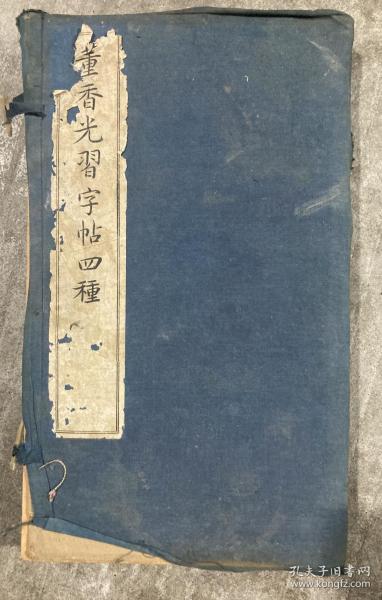 董香光習字帖四種
孔夫子旧书网
www.kongfz.com